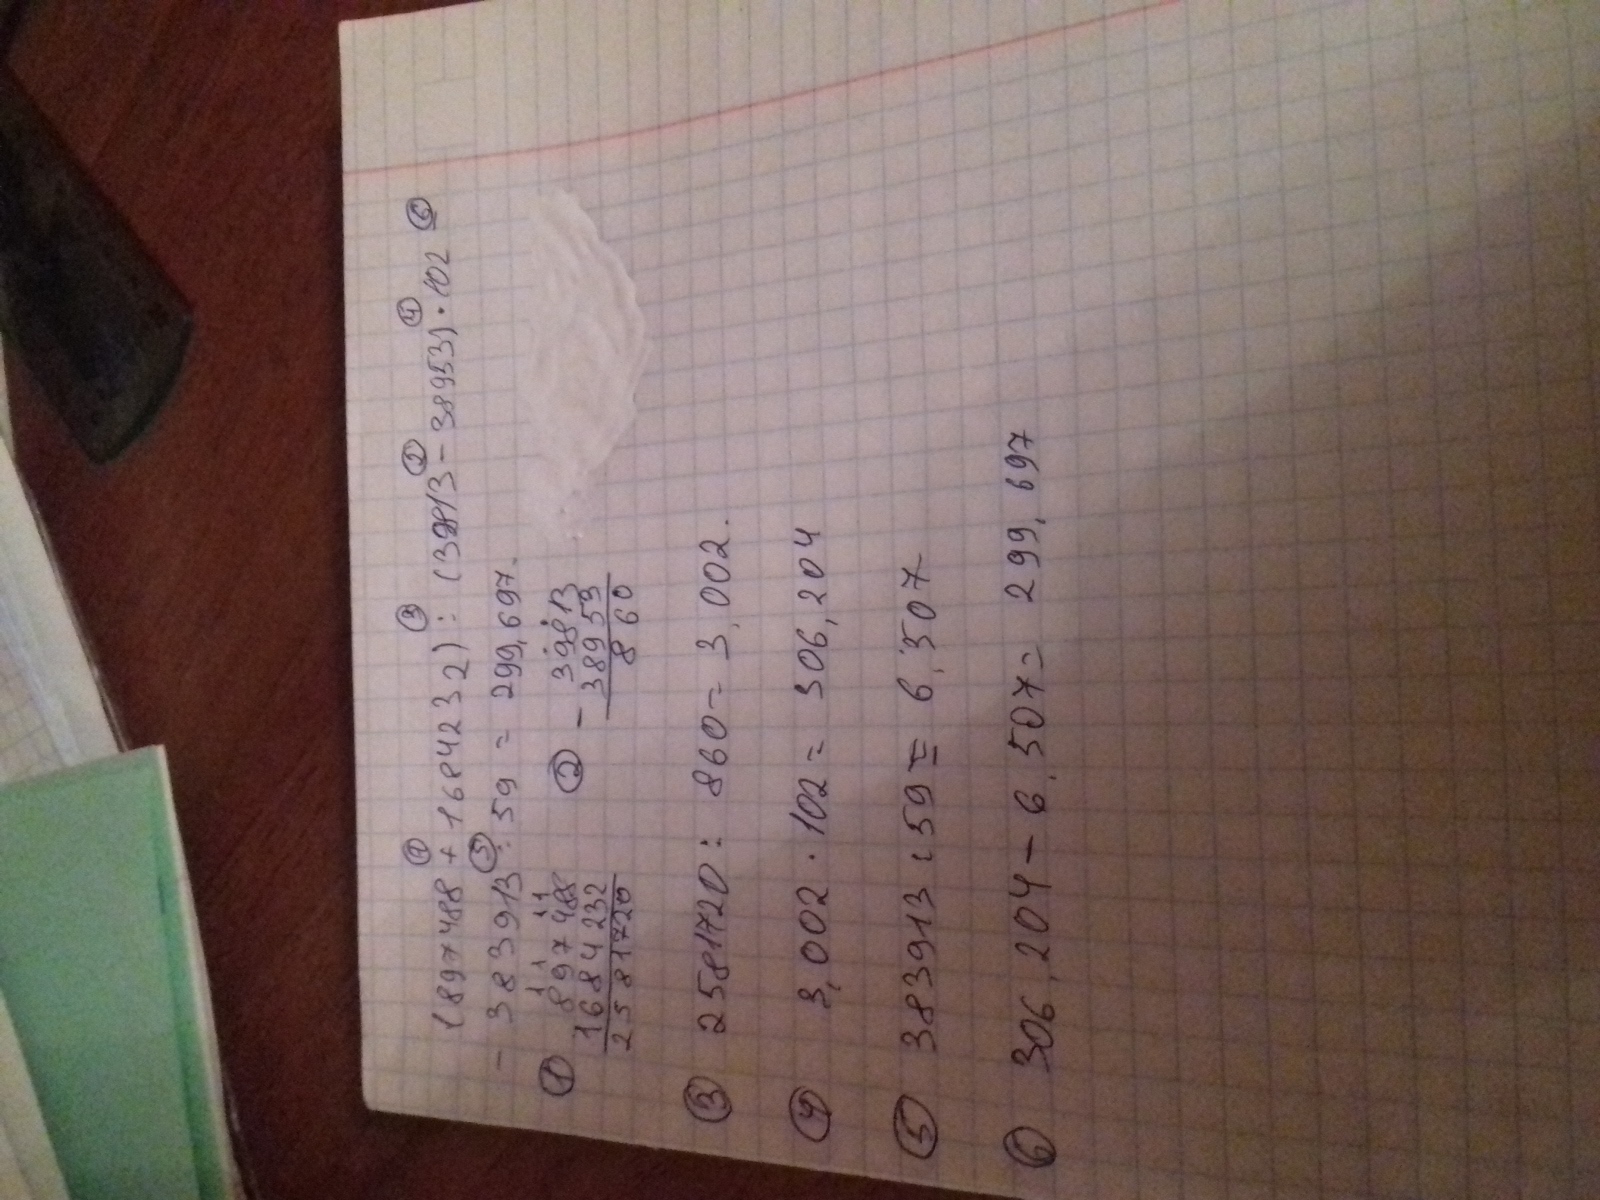 (897488 + 1684232) : (39813 - 38953) · 102
① ③ ② ④ ⑥
- 383913 : 59 = 299,697.
⑤
① 897488
1684232
2581720
② - 39813
38953
860
③ 2581720 : 860 = 3,002.
④ 3,002 · 102 = 306,204
⑤ 383913 : 59 = 6,507
⑥ 306,204 - 6,507 = 299,697